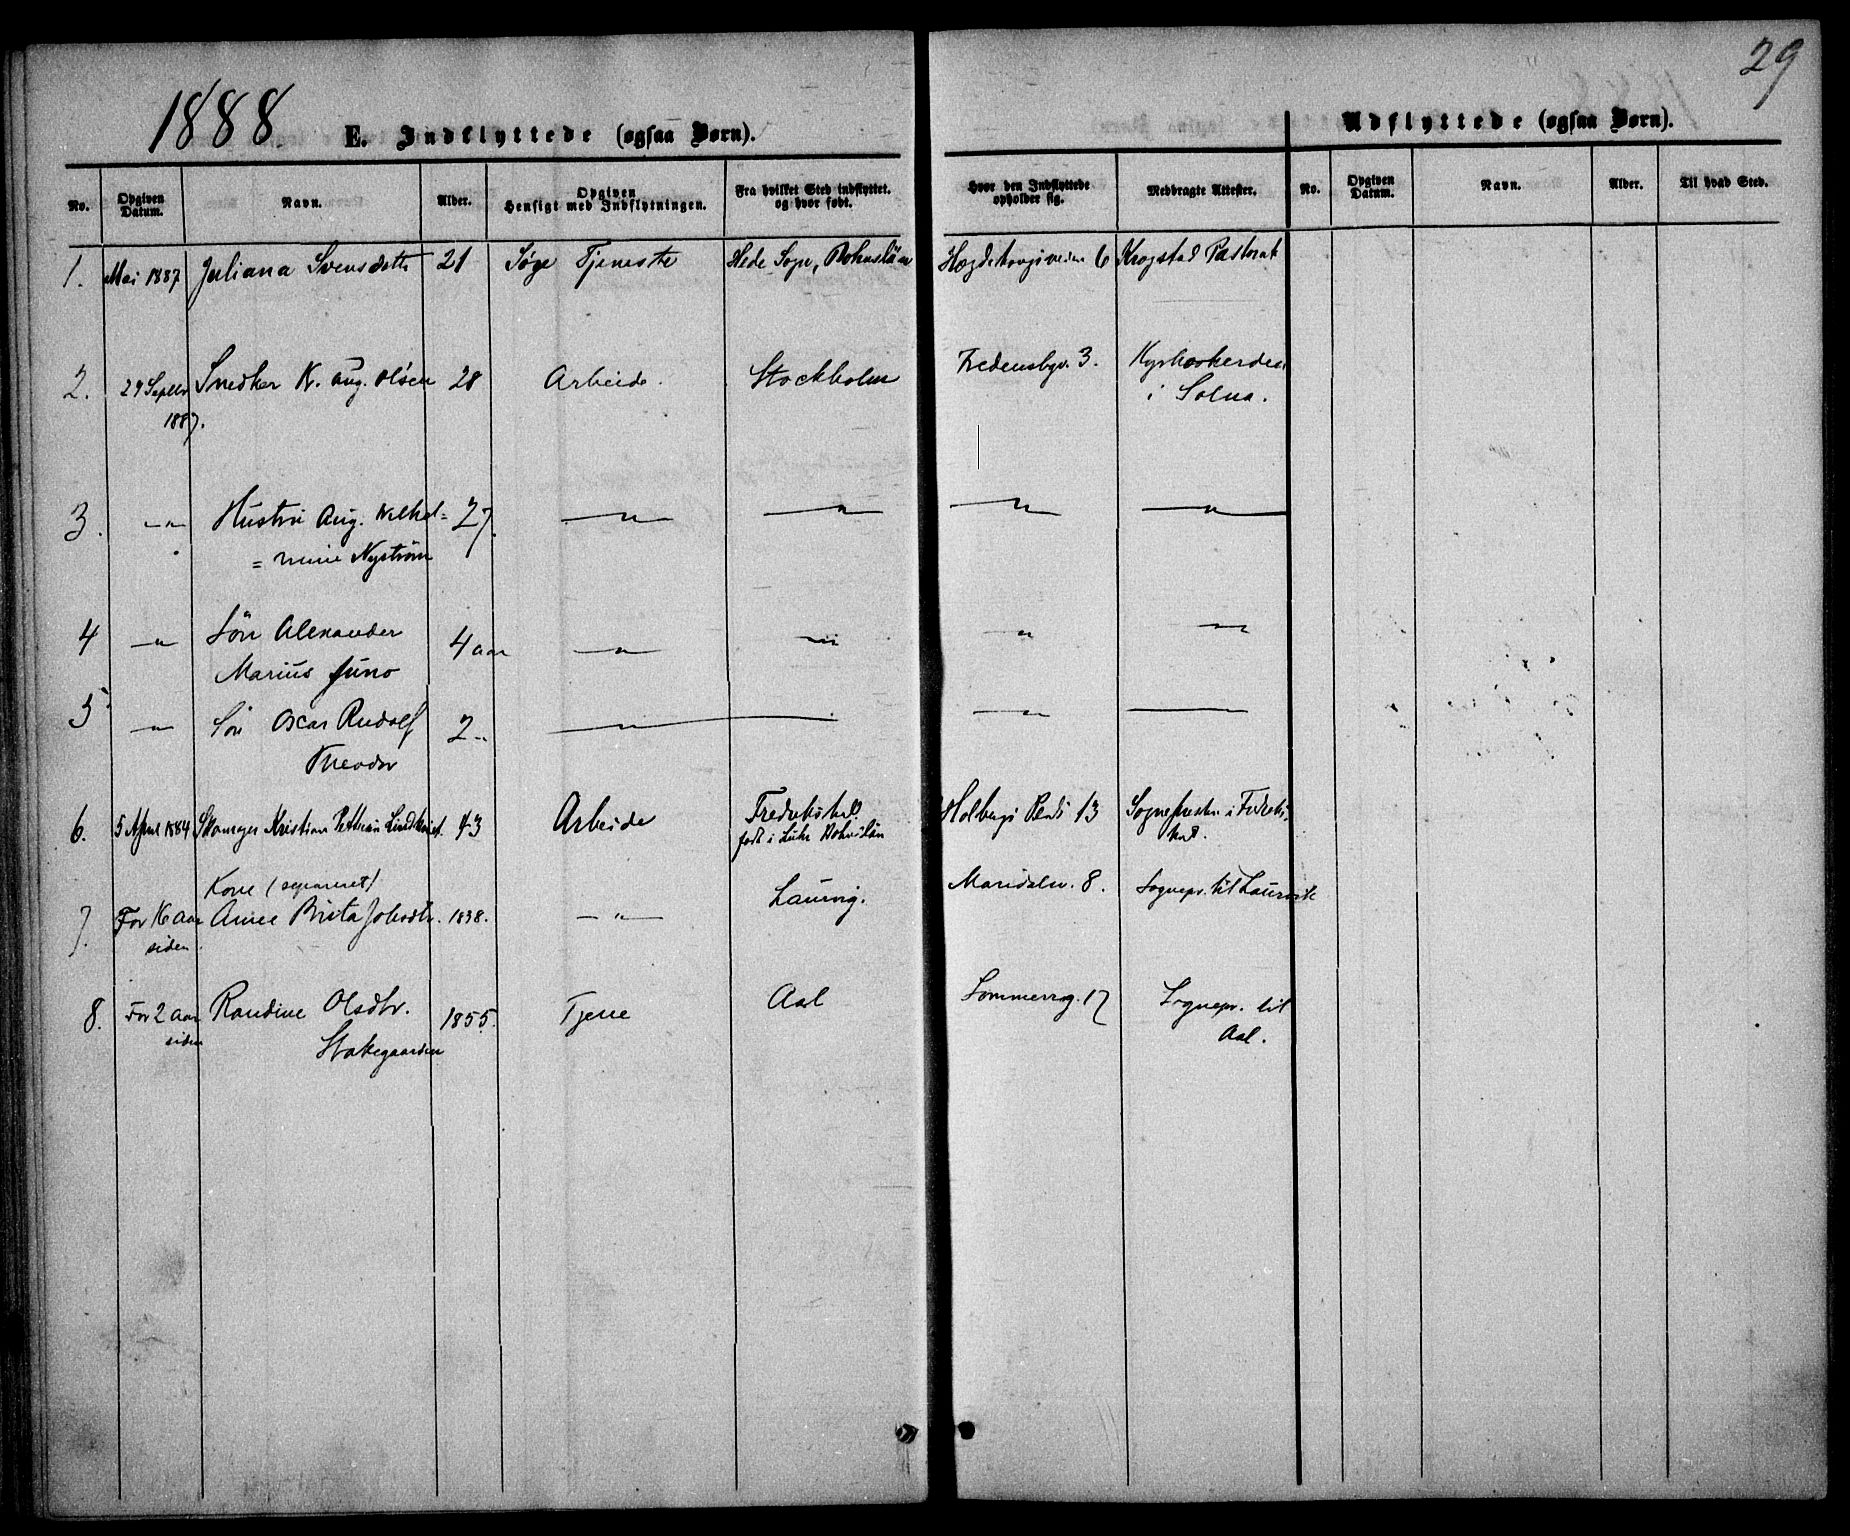 29
1888
E. Indflyttede (ogsaa Børn).
Udflyttede (ogsaa Børn).
No. Opgiven Datum. Navn. Alder. Opgiven Hensigt med Indflytningen. Fra hvilket Sted indflyttet. og hvor født. Hvor den Indflyttede opholder sig. Medbragte Attester. No. Opgiven Datum. Navn. Alder. Til hvad Sted.
1. Mai 1887 Juliana Svensdatte 21 Søge Tjeneste Hede Sogn, Bohuslän 6 Krogstad Pastorat
2. 29 Septbr Snedker K. Aug. Olsen 28 Arbeide. Stockholm Fredensbgv. 3. Kyrkoherden
1887. i Solna.
3. —"— Hustru Aug. Wilhel= 27. —"— —"— —"— —"—
= mine Nyström
4 —"— Søn Alexander 4 aar —"— —"— —"— —"—
Marius Juno
5 —"— Søn Oscar Rudolf 2 " —"— —"—
Theodor
6. 5 April 1884 Skomager Kristian 43 Arbeide Fredrikshald Holbergs 13 Sognepresten i Fredriks
født i Bohuslän hald.
7. For 16 Aar Kone (separeret) Anne Brita Johsdtr. 1838. —"— Laurvig. Maridalsv. 8. Sognepr. til Laurvik
siden
8. For 2 Aar Randine Olsdtr. 1855. Tjene Aal Sommerrog. 17 Sognepr. til
siden Stakegaarden Aal.